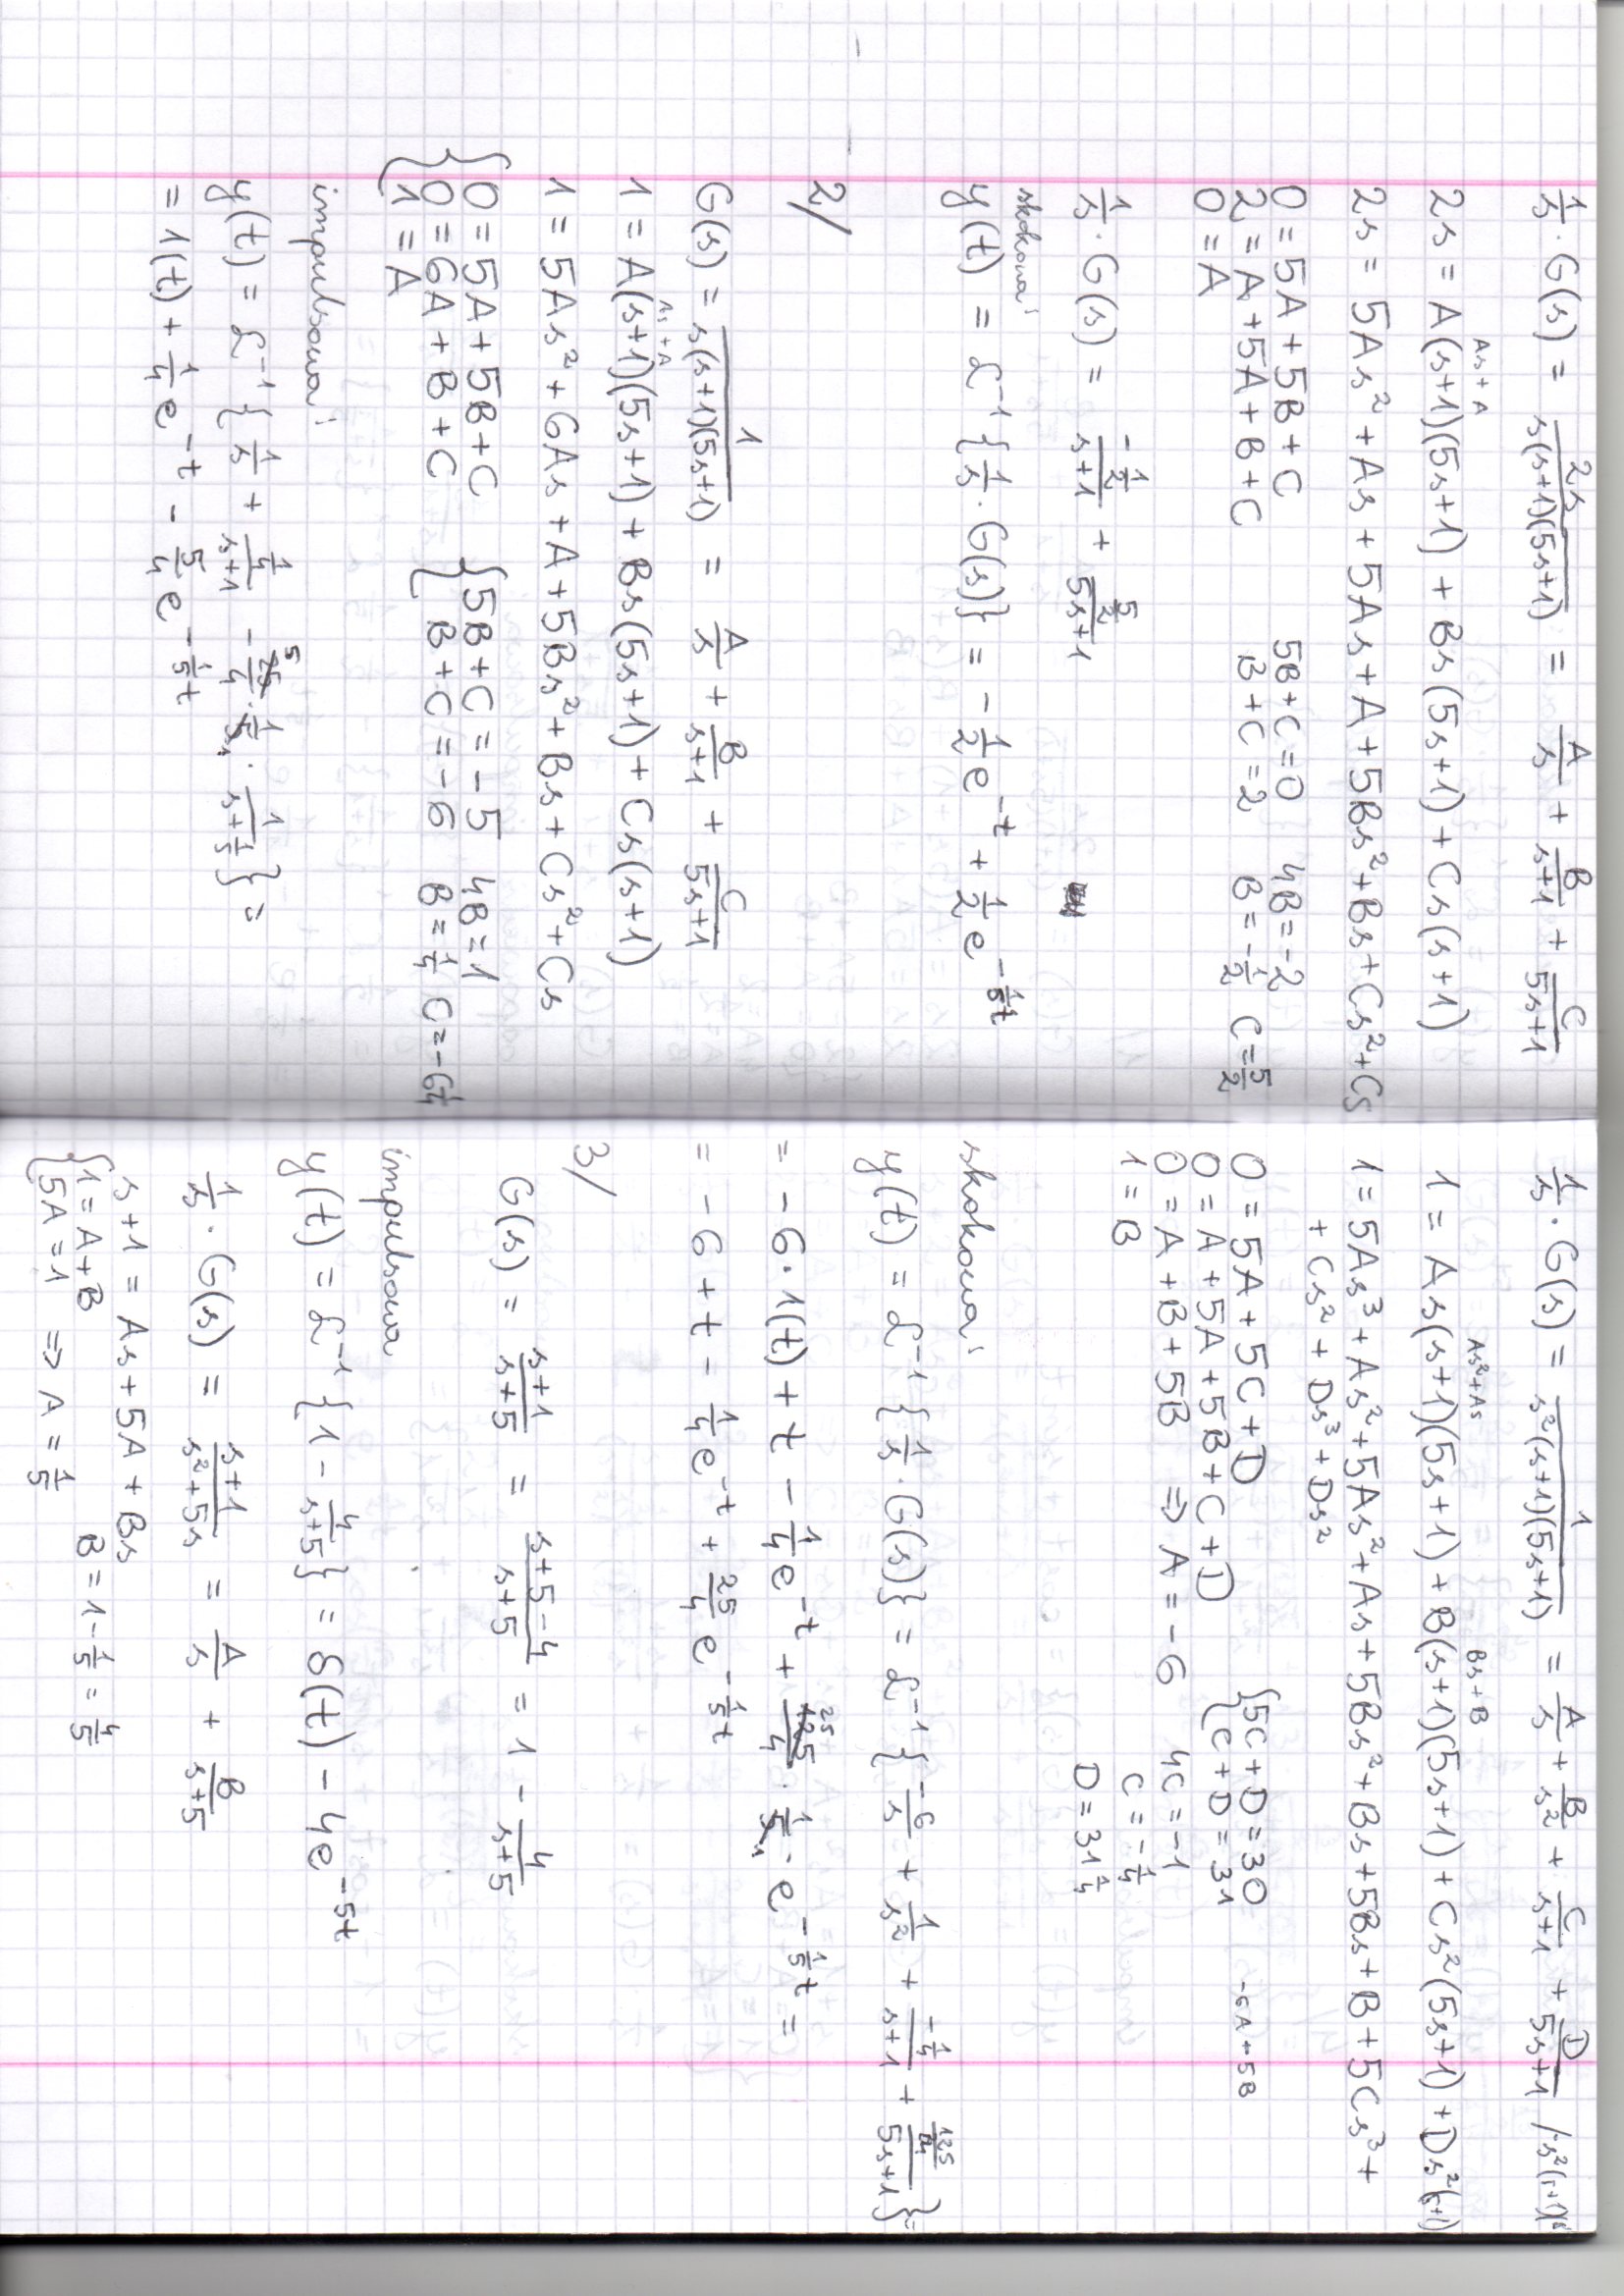 1/s · G(s) = 2s/(s(s+1)(5s+1)) = A/s + B/(s+1) + C/(5s+1)
As + A
2s = A(s+1)(5s+1) + Bs(5s+1) + Cs(s+1)
2s = 5As² + As + 5As + A + 5Bs² + Bs + Cs² + Cs
0 = 5A + 5B + C    5B + C = 0    4B = -2
2 = A + 5A + B + C    B + C = 2    B = -1/2    C = 5/2
0 = A
1/s · G(s) = (-1/2)/(s+1) + (5/2)/(5s+1)
skokowa:
y(t) = ℒ⁻¹{1/s · G(s)} = -1/2 e^(-t) + 1/2 e^(-1/5 t)
2/
G(s) = 1/(s(s+1)(5s+1)) = A/s + B/(s+1) + C/(5s+1)
As + A
1 = A(s+1)(5s+1) + Bs(5s+1) + Cs(s+1)
1 = 5As² + 6As + A + 5Bs² + Bs + Cs² + Cs
0 = 5A + 5B + C    5B + C = -5    4B = 1
0 = 6A + B + C    B + C = -6    B = 1/4    C = -6 1/4
1 = A
impulsowa:
y(t) = ℒ⁻¹{1/s + (1/4)/(s+1) - 25/4 · 1/5 · 1/(s+1/5)} =
5
1
= 1(t) + 1/4 e^(-t) - 5/4 e^(-1/5 t)
1/s · G(s) = 1/(s²(s+1)(5s+1)) = A/s + B/s² + C/(s+1) + D/(5s+1) /·s²(s+1)(5
As² + As    Bs + B
1 = As(s+1)(5s+1) + B(s+1)(5s+1) + Cs²(5s+1) + Ds²(s+1)
1 = 5As³ + As² + 5As² + As + 5Bs² + Bs + 5Bs + B + 5Cs³ +
+ Cs² + Ds³ + Ds²
0 = 5A + 5C + D    5C + D = 30    -6A + 5B
0 = A + 5A + 5B + C + D    C + D = 31
0 = A + B + 5B ⇒ A = -6    4C = -1
1 = B    C = -1/4
D = 31 1/4
skokowa:
y(t) = ℒ⁻¹{1/s · G(s)} = ℒ⁻¹{-6/s + 1/s² + (-1/4)/(s+1) + (125/4)/(5s+1)} =
= -6 · 1(t) + t - 1/4 e^(-t) + 125/4 · 1/5 · e^(-1/5 t) =
25
1
= -6 + t - 1/4 e^(-t) + 25/4 e^(-1/5 t)
3/
G(s) = (s+1)/(s+5) = (s+5-4)/(s+5) = 1 - 4/(s+5)
impulsowa
y(t) = ℒ⁻¹{1 - 4/(s+5)} = δ(t) - 4e^(-5t)
1/s · G(s) = (s+1)/(s²+5s) = A/s + B/(s+5)
s+1 = As + 5A + Bs
1 = A + B    B = 1 - 1/5 = 4/5
5A = 1 ⇒ A = 1/5